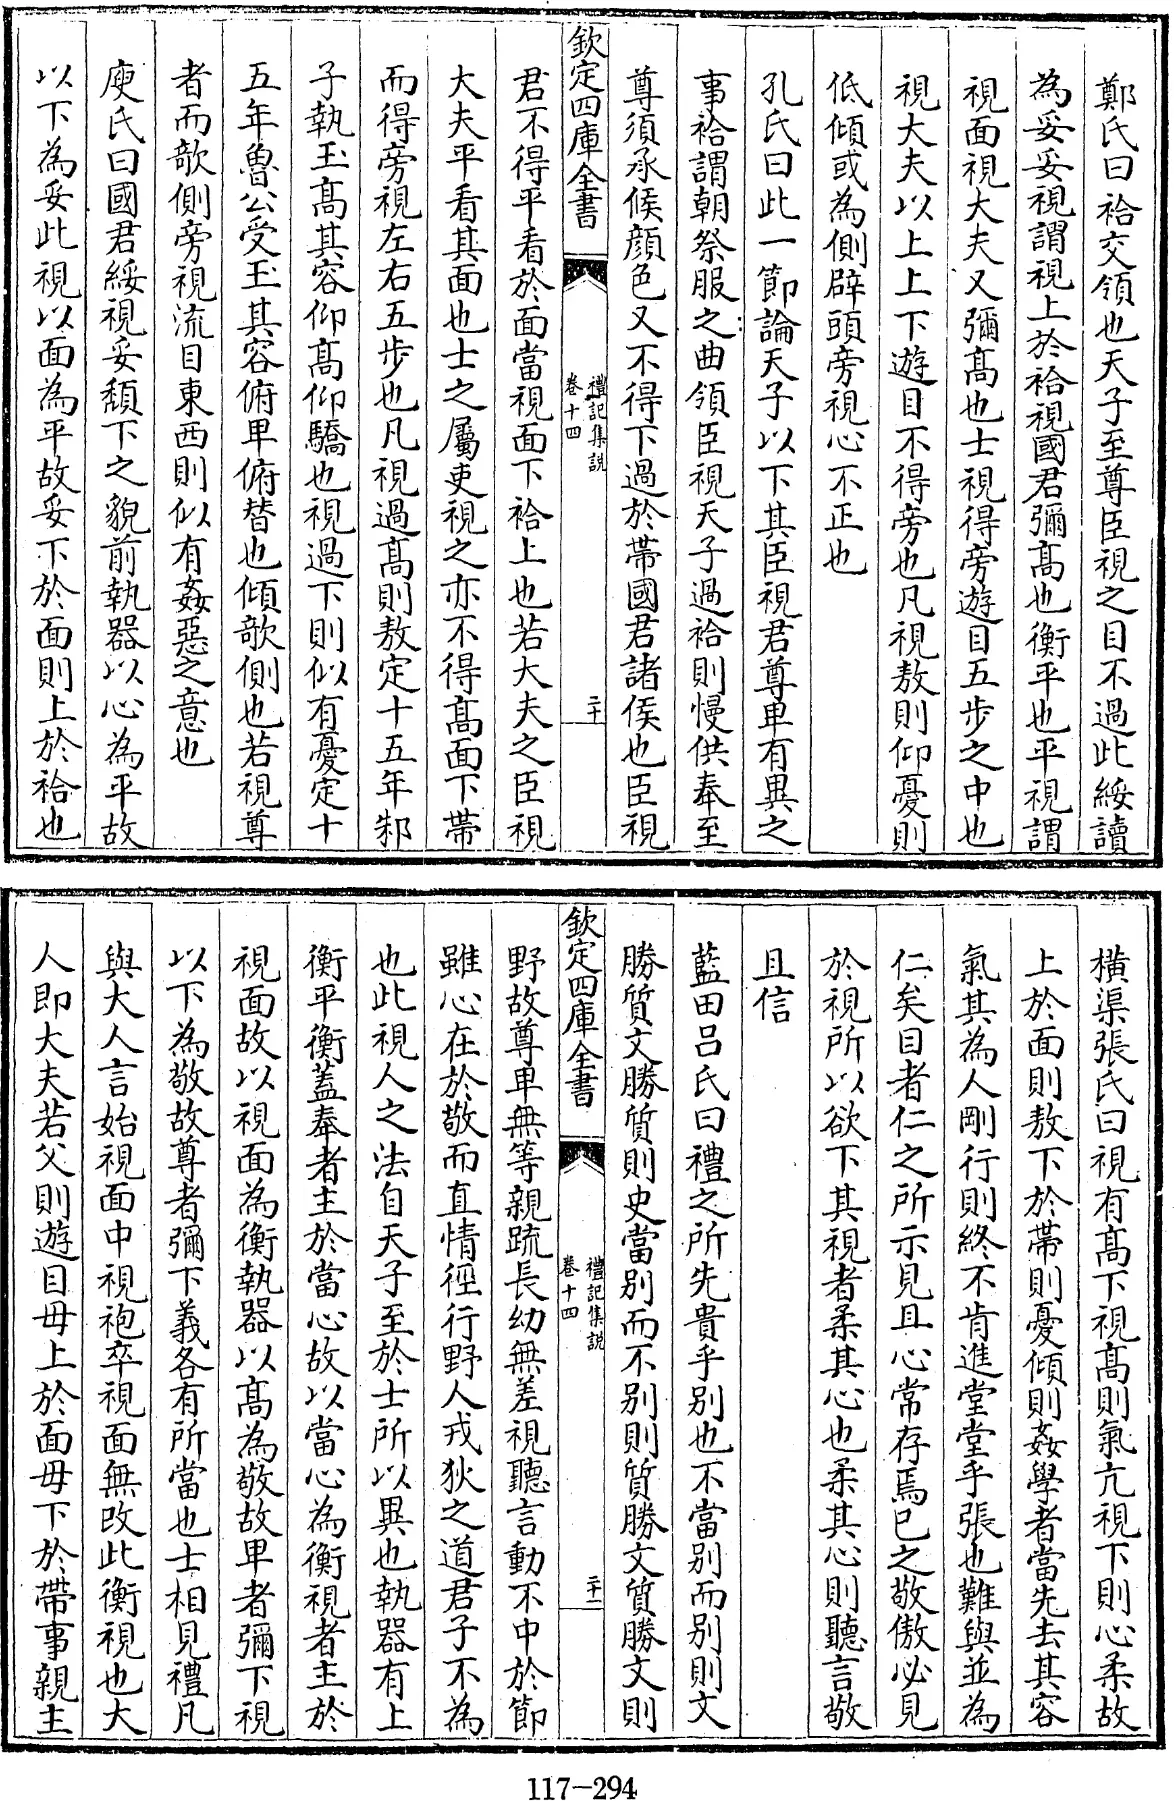 鄭氏曰袷交領也天子至尊臣視之目不過此綏讀
為妥妥視謂視上於袷視國君彌髙也衡平也平視謂
視面視大夫又彌髙也士視得旁遊目五步之中也
視大夫以上上下遊目不得旁也凡視敖則仰憂則
低傾或為側辟頭旁視心不正也
孔氏曰此一節論天子以下其臣視君尊卑有異之
事袷謂朝祭服之曲領臣視天子過袷則慢供奉至
尊須承候顔色又不得下過於帶國君諸侯也臣視
欽定四庫全書
禮記集説
卷十四
二十
君不得平看於面當視面下袷上也若大夫之臣視
大夫平看其面也士之屬吏視之亦不得髙面下帶
而得旁視左右五步也凡視過髙則敖定十五年邾
子執玉髙其容仰髙仰驕也視過下則似有憂定十
五年魯公受玉其容俯卑俯替也傾欹側也若視尊
者而欹側旁視流目東西則似有姦惡之意也
庾氏曰國君綏視妥頹下之貌前執器以心為平故
以下為妥此視以面為平故妥下於面則上於袷也
橫渠張氏曰視有髙下視髙則氣亢視下則心柔故
上於面則敖下於帶則憂傾則姦學者當先去其容
氣其為人剛行則終不肯進堂堂乎張也難與並為
仁矣目者仁之所示見且心常存焉已之敬傲必見
於視所以欲下其視者柔其心也柔其心則聽言敬
且信
藍田呂氏曰禮之所先貴乎别也不當别而别則文
勝質文勝質則史當别而不别則質勝文質勝文則
欽定四庫全書
禮記集説
卷十四
二十一
野故尊卑無等親疏長幼無差視聽言動不中於節
雖心在於敬而直情徑行野人戎狄之道君子不為
也此視人之法自天子至於士所以異也執器有上
衡平衡蓋奉者主於當心故以當心為衡視者主於
視面故以視面為衡執器以髙為敬故卑者彌下視
以下為敬故尊者彌下義各有所當也士相見禮凡
與大人言始視面中視袍卒視面無改此衡視也大
人即大夫若父則遊目毋上於面毋下於帶事親主
117-294